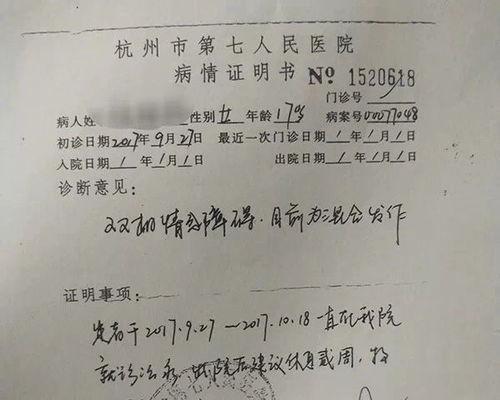 杭州市第七人民医院
病情证明书 № 1520618
门诊号
病人姓 性别 女 年龄 17岁 病案号 00077048
初诊日期 2017年9月27日 最近一次门诊日期 1年1月1日
入院日期 1年1月1日 出院日期 1年1月1日
诊断意见：
双相情感障碍，目前为混合发作
证明事项：
患者于2017.9.27—2017.10.18一直在我院
就诊治疗，出院后建议休息贰周，